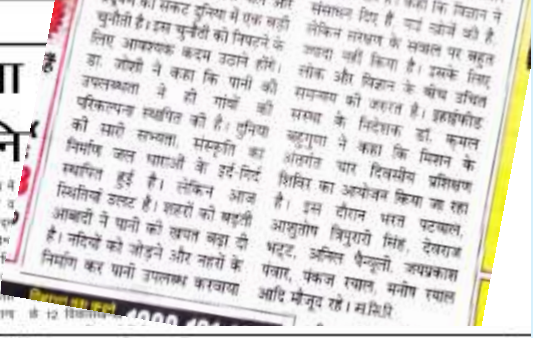 चुनौती है। इस चुनौती को निपटने के
लिए आवश्यक कदम उठाने होंगे।
डा. जोशी ने कहा कि पानी की
उपलब्धता ने ही गांवों की
परिकल्पना स्थापित की है। दुनिया
की सारी सभ्यता, संस्कृति का
निर्माण जल धाराओं के इर्द-गिर्द
स्थापित हुई है। लेकिन आज
स्थितियां उलट है। शहरों की बढ़ती
आबादी ने पानी की खपत बढ़ा दी
है। नदियों को जोड़ने और नहरों के
निर्माण कर पानी उपलब्ध करवाया
संसाधन दिए हैं, नई खोजें की है
लेकिन संरक्षण के सवाल पर बहुत
ज्यादा नहीं किया है। इसके लिए
लोक और विज्ञान के बीच उचित
समन्वय की जरुरत है।
संस्था के निदेशक डॉ. कमल
बहुगुणा ने कहा कि मिशन के
अंतर्गत चार दिवसीय प्रशिक्षण
शिविर का आयोजन किया जा रहा
है। इस दौरान भरत पटवाल,
आशुतोष त्रिपुरारी सिंह, देवराज
भट्ट, अनिल पैन्यूली, जयप्रकाश
पंवार, पंकज रयाल, मनीष रयाल
आदि मौजूद रहे।